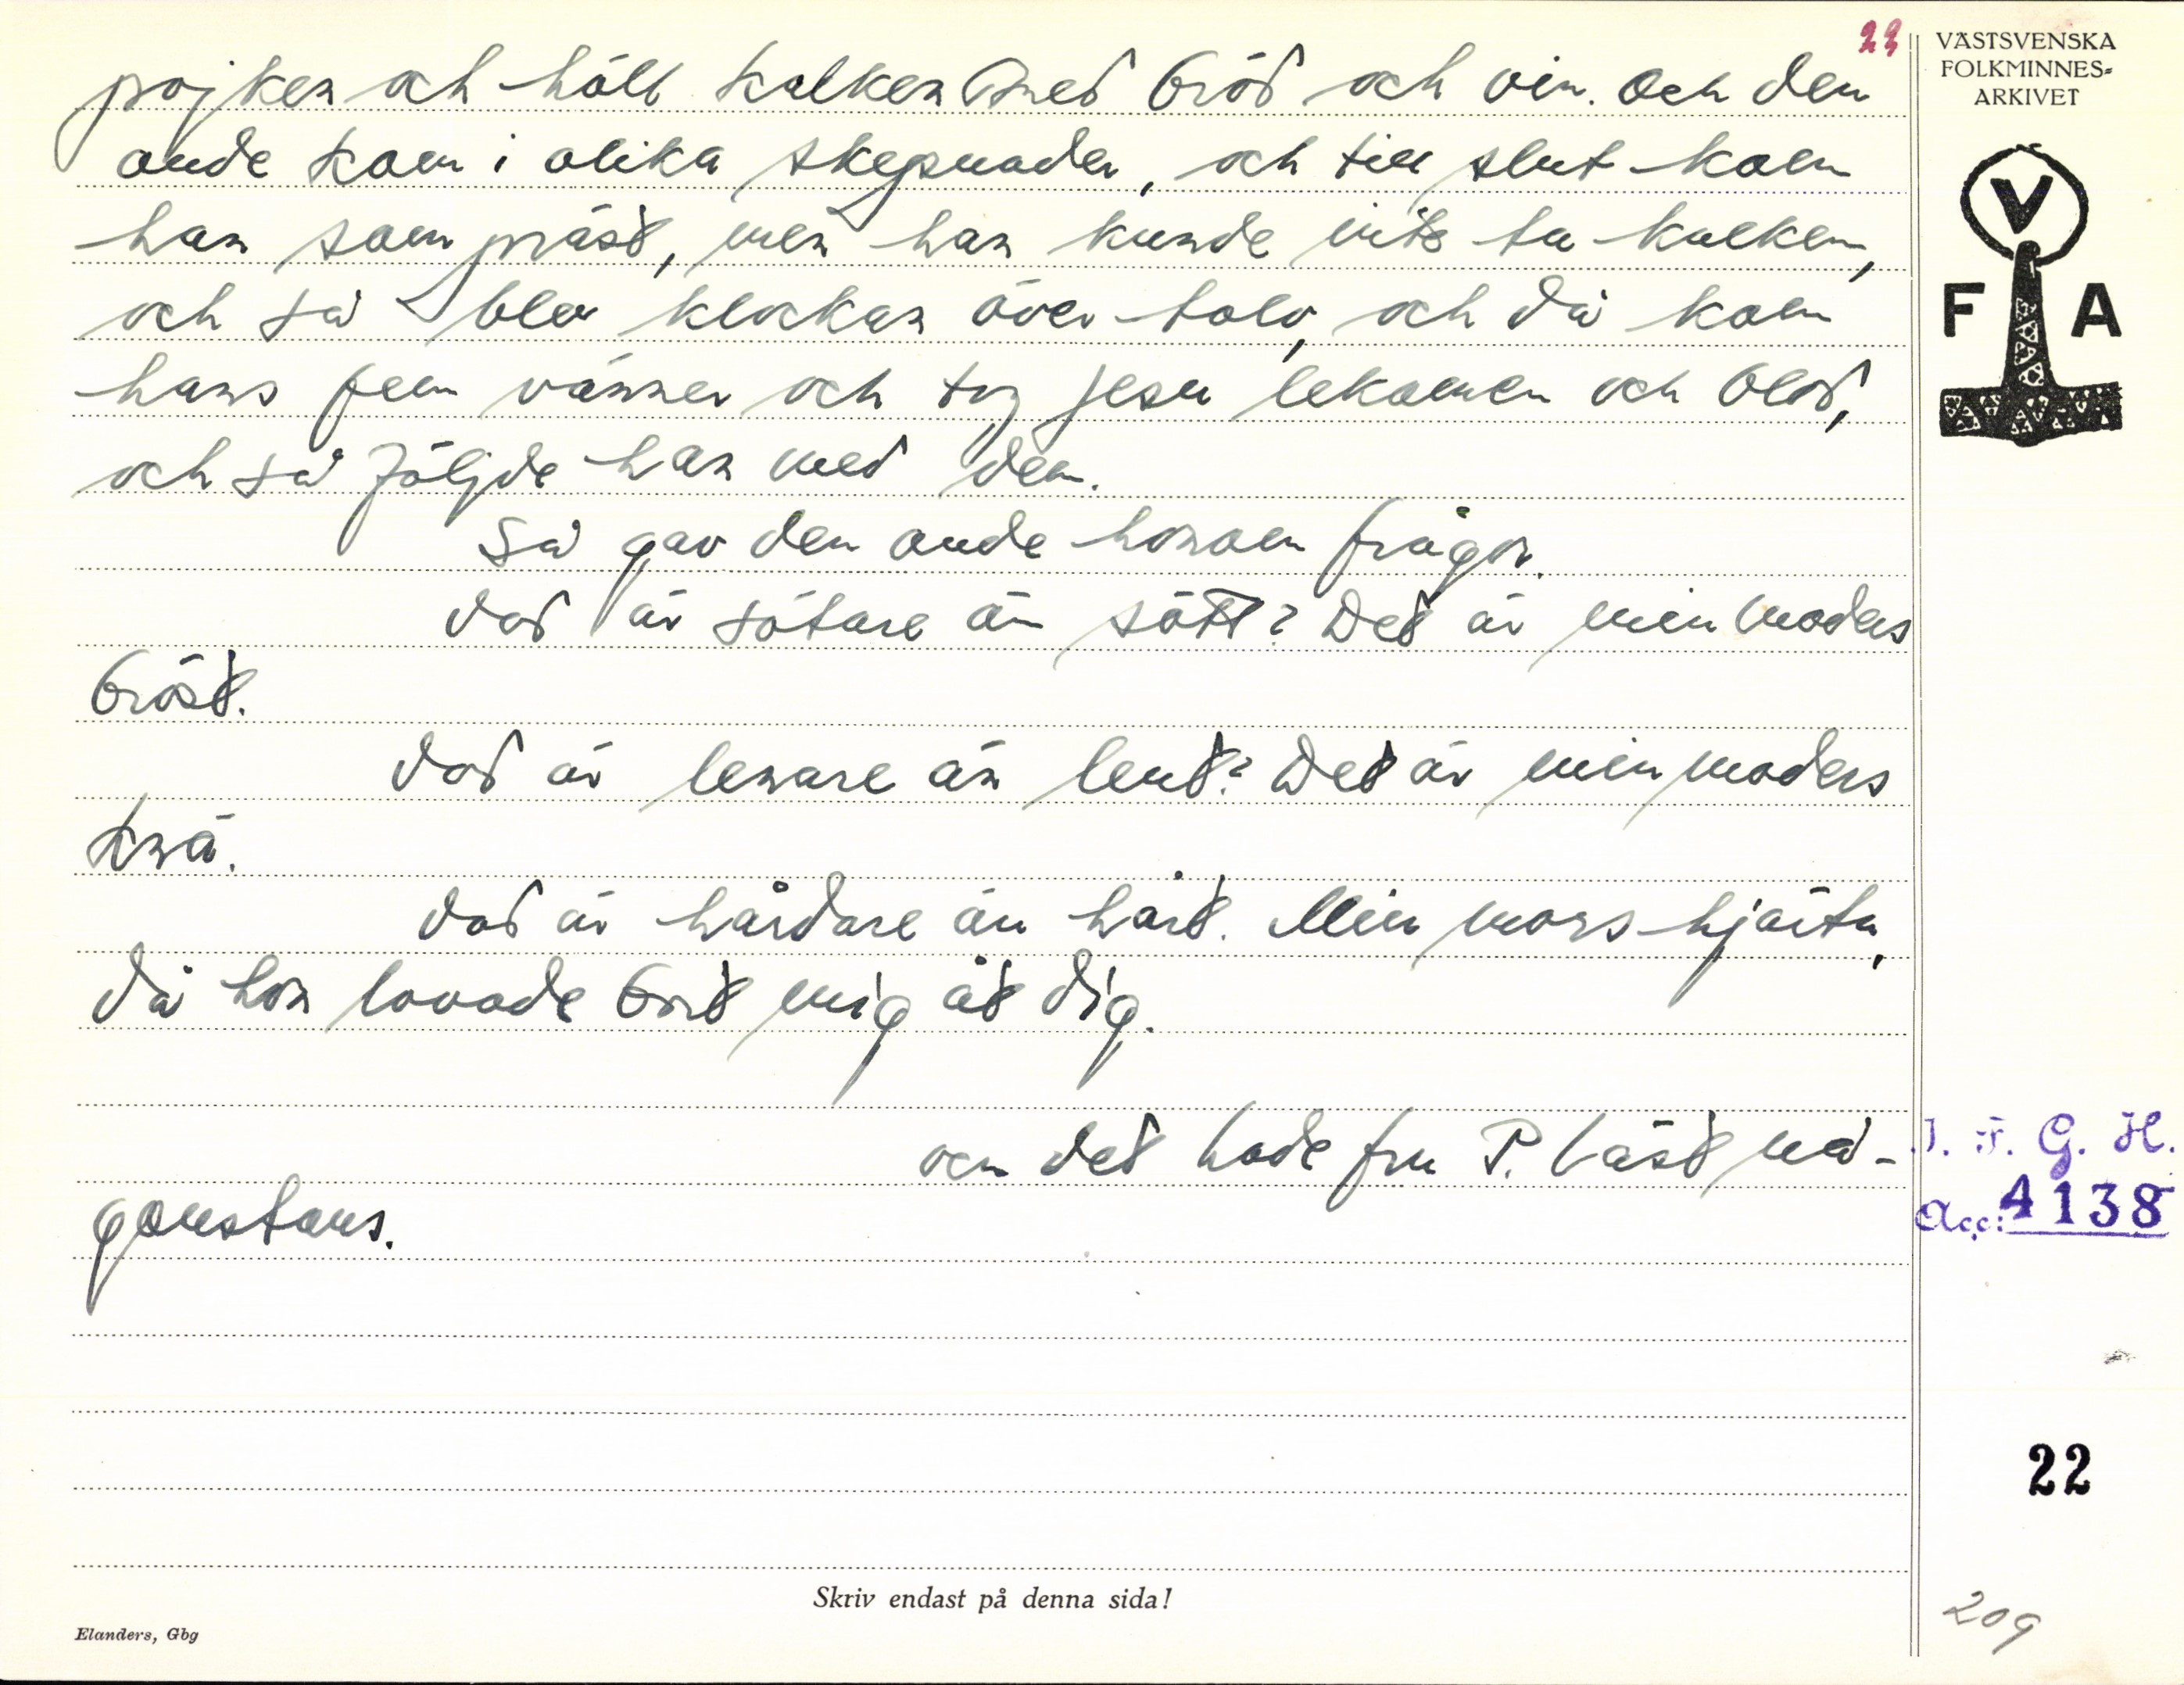 23
VÄSTSVENSKA
FOLKMINNES=
ARKIVET
V
F A
pojken och höll kalken med bröd och vin. Och den
onde kom i olika skepnader, och till slut kom
han som präst, men han kunde inte ta kalken,
och så blev klockan över tolv, och då kom
hans fem vänner och tog Jesu lekamen och blod,
och så följde han med dem.
Så gav den onde honom frågor.
Vad är sötare än sött? Det är min moders
bröst.
Vad är lenare än lent? Det är min moders
knä.
Vad är hårdare än hårt. Min mors hjärta,
då hon lovade bort mig åt dig.
Och det hade fru P. läst nå-
gonstans.
I. F. G. H.
Acc: 4138
22
209
Skriv endast på denna sida!
Elanders, Gbg